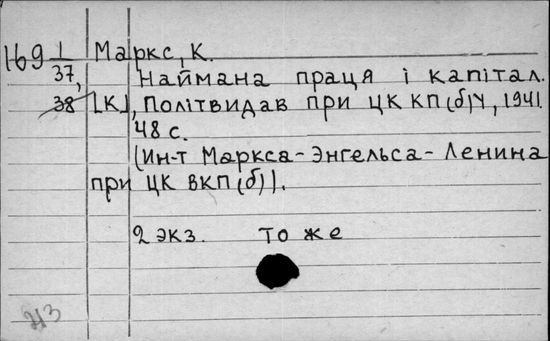 169 1/37, Маркс, К.
Наймана праця і капітал.
38 [К.], Політвидав при ЦК КП(б)У, 1941.
48 с.
(Ин-т Маркса-Энгельса-Ленина
при ЦК ВКП(б)).
2 экз. то же